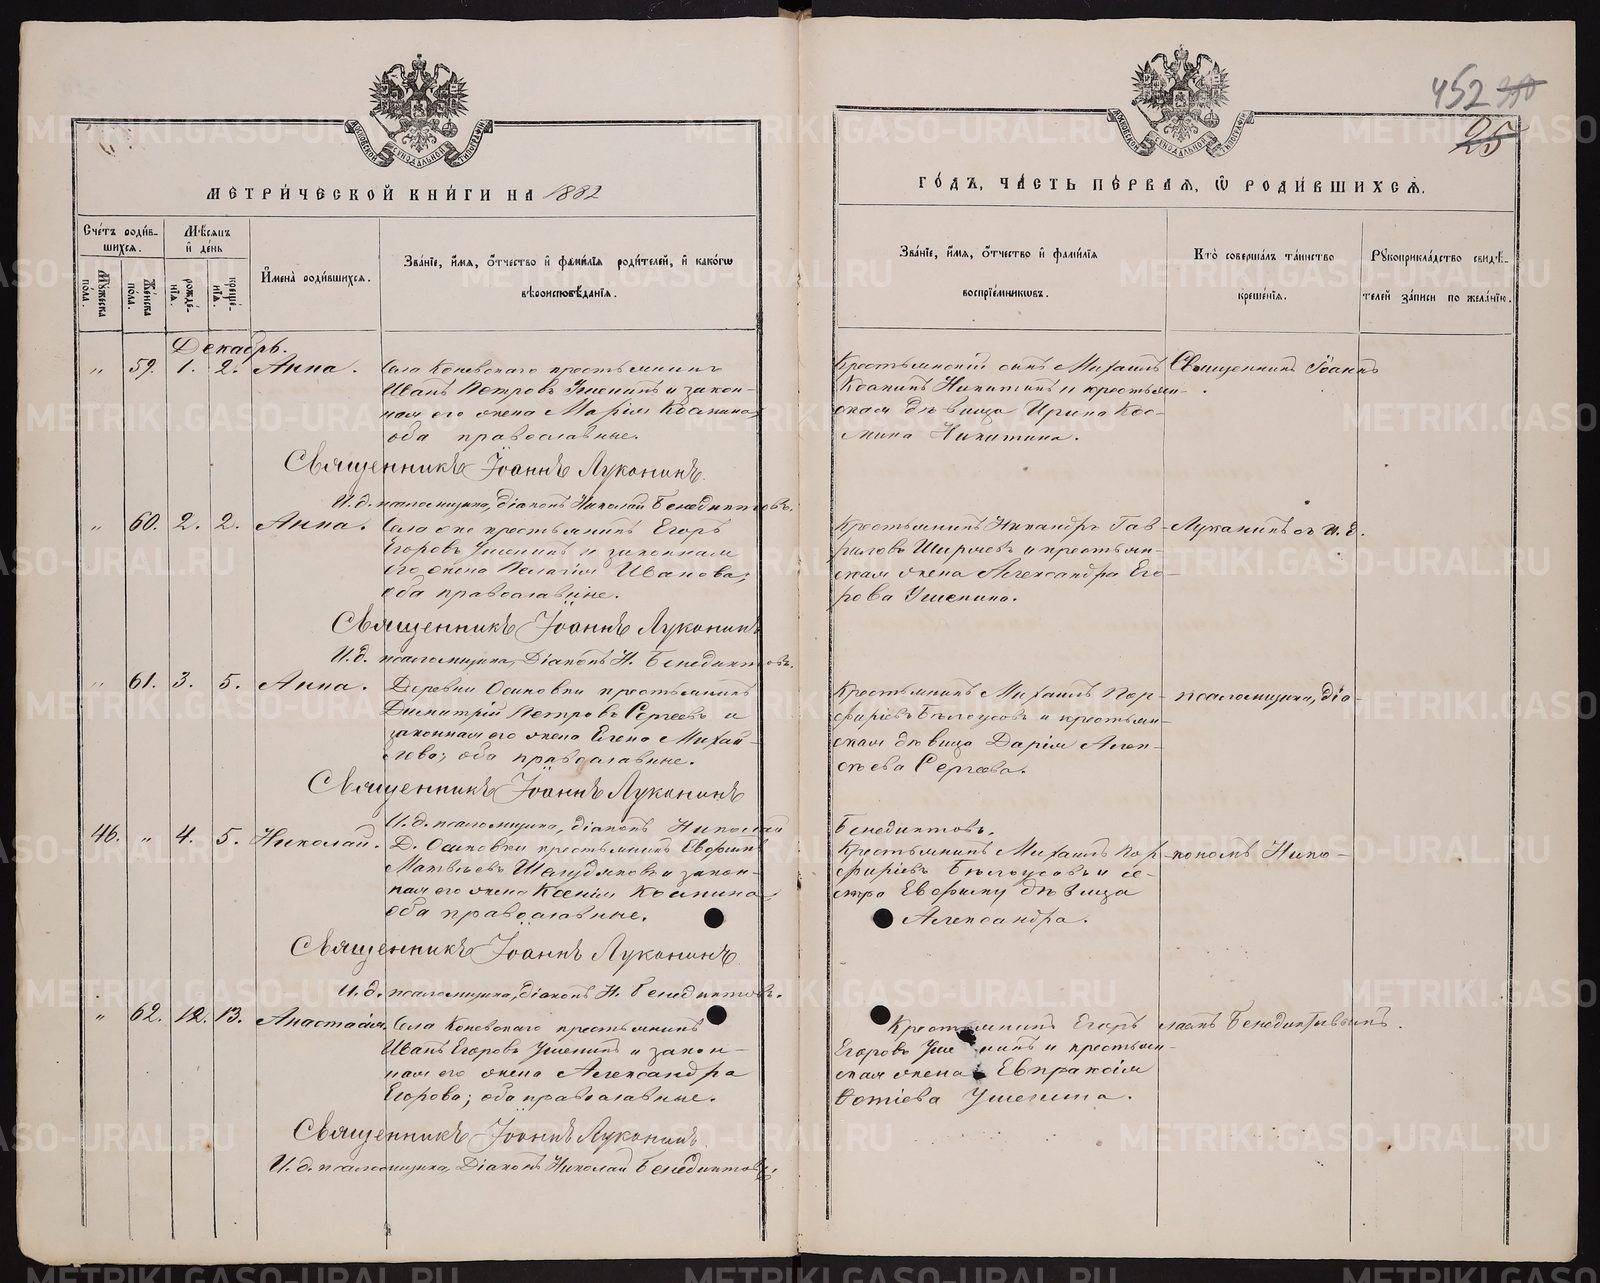 452 350
25
МОСКОВСКОЙ СѴНОДАЛЬНОЙ ТИПОГРАФІИ
МОСКОВСКОЙ СѴНОДАЛЬНОЙ ТИПОГРАФІИ
МЕТРИ́ЧЕСКОЙ КНИ́ГИ НА 1882
ГО́ДЪ, ЧА́СТЬ ПЕ́РВАЯ, Ѡ РОДИ́ВШИХСЯ.
Сче́тъ роди́в-
шихся.
Мѣ́сяцъ
и҆ де́нь
Мꙋ́жеска по́ла.
Же́нска по́ла.
рожде́-
нїя.
креще́-
нїя.
И҆мена̀ роди́вшихся.
Зва́нїе, и҆́мя, ѻ҆́тчество и҆ фами́лїя роди́телей, и҆ како́гѡ
вѣроисповѣ́данїя.
Зва́нїе, и҆́мя, ѻ҆́тчество и҆ фами́лїя
воспрїе́мниковъ.
Кто̀ соверша́лъ та́инство
креще́нїя.
Рꙋкоприкла́дство свидѣ́-
телей за́писи по жела́нїю.
Декабрь.
„ 59. 1. 2. Анна. Села Коневскаго крестьянинъ
Иванъ Петровъ Ушенинъ и закон-
ная его жена Марія Космина;
оба православные.
Священникъ Іоаннъ Луканинъ.
И.д. псаломщика, діаконъ Николай Бенедиктовъ.
Крестьянскій сынъ Михаилъ
Косминъ Никитинъ и крестьян-
ская дѣвица Ирина Кос-
мина Никитина.
Священникъ Іоаннъ
„ 60. 2. 2. Анна. Села она крестьянинъ Егоръ
Егоровъ Ушенинъ и законная
его жена Пелагія Иванова;
оба православные.
Священникъ Іоаннъ Луканинъ
И.д. псаломщика, Діаконъ Н. Бенедиктовъ.
Крестьянинъ Никандръ Гав-
риловъ Ширяевъ и крестьян-
ская жена Александра Его-
рова Ушенина.
Луканинъ съ и.д.
„ 61. 3. 5. Анна. Деревни Осиновки крестьянинъ
Димитрій Петровъ Сергеевъ и
законная его жена Елена Михай-
лова; оба православные.
Священникъ Іоаннъ Луканинъ
И.д. псаломщика, діаконъ Николай
Бенедиктовъ.
Крестьянинъ Михаилъ Пор-
фиріевъ Бѣлоусовъ и крестьян-
ская дѣвица Дарія Алек-
сѣева Сергеева.
псаломщика, діа-
46. „ 4. 5. Николай. Д. Осиновки крестьянинъ Евфимъ
Матвѣевъ Шелудяковъ и закон-
ная его жена Ксенія Космина;
оба православные.
Священникъ Іоаннъ Луканинъ
И.д. псаломщика, діаконъ Н. Бенедиктовъ.
Крестьянинъ Михаилъ Пор-
фиріевъ Бѣлоусовъ и се-
стра Евфиму дѣвица
Александра.
кономъ Нико-
„ 62. 12. 13. Анастасія. Села Коневскаго крестьянинъ
Иванъ Егоровъ Ушенинъ и закон-
ная его жена Александра
Егорова; оба православные.
Священникъ Іоаннъ Луканинъ.
И.д. псаломщика, Діаконъ Николай Бенедиктовъ.
Крестьянинъ Егоръ
Егоровъ Ушенинъ и крестьян-
ская жена Евпраксія
Фотіева Ушенина.
лаемъ Бенедиктовымъ.